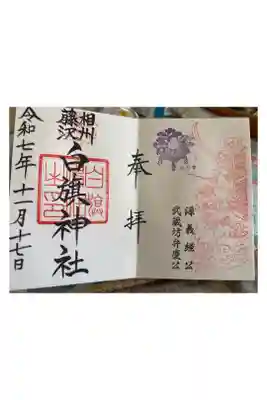 奉拝
源義経公
武蔵坊弁慶公
相州
藤沢
白旗神社
令和七年十一月十七日